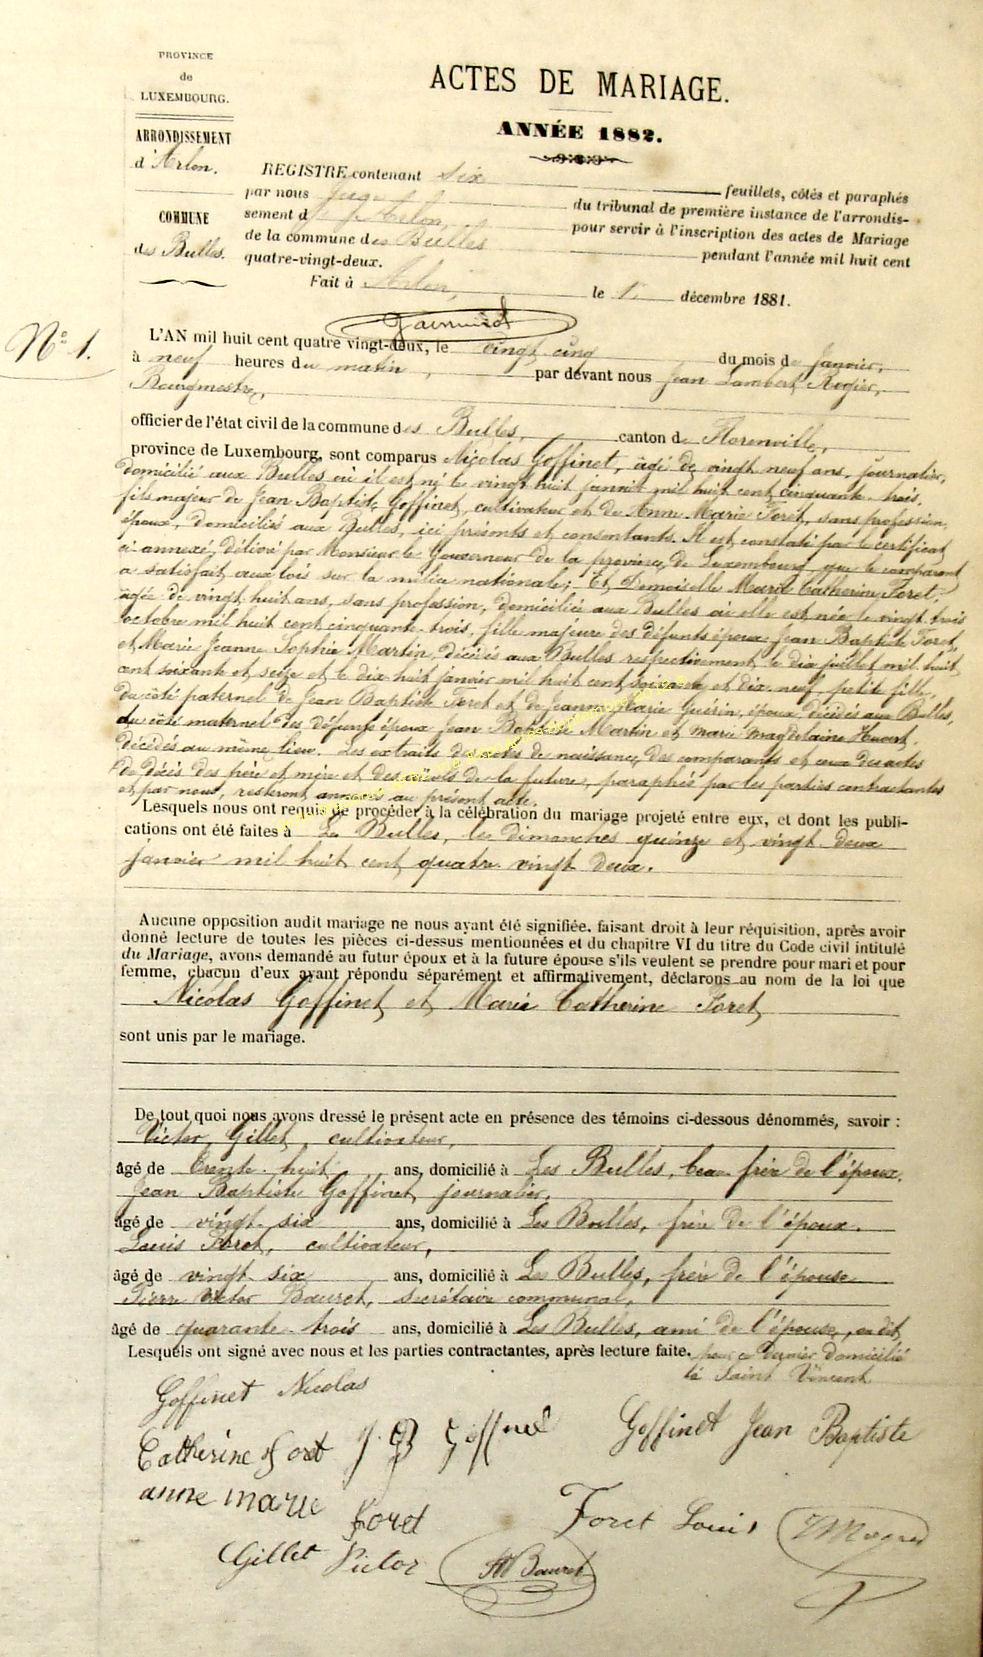 PROVINCE
de
LUXEMBOURG.
ARRONDISSEMENT
d'Arlon.
COMMUNE
des Bulles.
ACTES DE MARIAGE.
ANNÉE 1882.
REGISTRE contenant six feuillets, côtés et paraphés
par nous Juge du tribunal de première instance de l'arrondis-
sement d'Arlon, pour servir à l'inscription des actes de Mariage
de la commune des Bulles pendant l'année mil huit cent
quatre-vingt-deux.
Fait à Arlon, le 1 décembre 1881.
N° 1.
L'AN mil huit cent quatre vingt-deux, le vingt cinq du mois de Janvier,
à neuf heures du matin, par devant nous Jean Lambert Rogier,
Bourgmestre,
officier de l'état civil de la commune des Bulles, canton de Florenville,
province de Luxembourg, sont comparus Nicolas Goffinet, âgé de vingt neuf ans, journalier,
domicilié aux Bulles où il est né le vingt huit janvier mil huit cent cinquante-trois,
fils majeur de Jean Baptiste Goffinet, cultivateur et de Anne Marie Foret, sans profession,
époux, domiciliés aux Bulles, ici présents et consentants. Il est constaté par le certificat
ci-annexé, délivré par Monsieur le Gouverneur de la province de Luxembourg que le comparant
a satisfait aux lois sur la milice nationale; Et Demoiselle Marie Catherine Foret,
âgée de vingt huit ans, sans profession, domiciliée aux Bulles où elle est née le vingt trois
octobre mil huit cent cinquante-trois, fille majeure des défunts époux Jean Baptiste Foret,
et Marie Jeanne Sophie Martin, décédés aux Bulles respectivement le dix juillet mil huit
cent soixante et seize et le dix huit janvier mil huit cent soixante et dix-neuf, petite fille,
du côté paternel de Jean Baptiste Foret et de Jeanne Marie Guerin, époux décédés aux Bulles,
du côté maternel des défunts époux Jean Baptiste Martin et Marie Magdelaine
décédés au même lieu. Les extraits des actes de naissance des comparants et ceux des actes
de décès des père et mère et des aïeuls de la future, paraphés par les parties contractantes
et par nous, resteront annexés au présent acte.
Lesquels nous ont requis de procéder à la célébration du mariage projeté entre eux, et dont les publi-
cations ont été faites à Les Bulles, les dimanches quinze et vingt-deux
janvier mil huit cent quatre vingt deux.
Aucune opposition audit mariage ne nous ayant été signifiée, faisant droit à leur réquisition, après avoir
donné lecture de toutes les pièces ci-dessus mentionnées et du chapitre VI du titre du Code civil intitulé
du Mariage, avons demandé au futur époux et à la future épouse s'ils veulent se prendre pour mari et pour
femme, chacun d'eux ayant répondu séparément et affirmativement, déclarons au nom de la loi que
Nicolas Goffinet et Marie Catherine Foret
sont unis par le mariage.
De tout quoi nous avons dressé le présent acte en présence des témoins ci-dessous dénommés, savoir :
Victor Gillet, cultivateur,
âgé de trente-huit ans, domicilié à Les Bulles, beau frère de l'époux.
Jean Baptiste Goffinet, journalier,
âgé de vingt-six ans, domicilié à Les Bulles, frère de l'époux.
Louis Foret, cultivateur,
âgé de vingt six ans, domicilié à Les Bulles, frère de l'épouse
Pierre Victor Bauret, secrétaire communal,
âgé de quarante-trois ans, domicilié à Les Bulles, ami de l'épouse, on dit
Lesquels ont signé avec nous et les parties contractantes, après lecture faite. pour ce dernier domicilié
à Saint Vincent
Goffinet Nicolas
Catherine Foret J. B Goffinet Goffinet Jean Baptiste
anne marie Foret Foret Louis
Gillet Victor Bauret